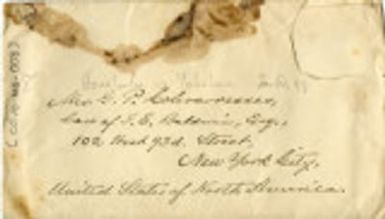 Mrs. G. P. Colvocoresses,
Care of T. E. Baldwin, Esq.,
102 West 93d. Street,
New York City,
United States of North America.